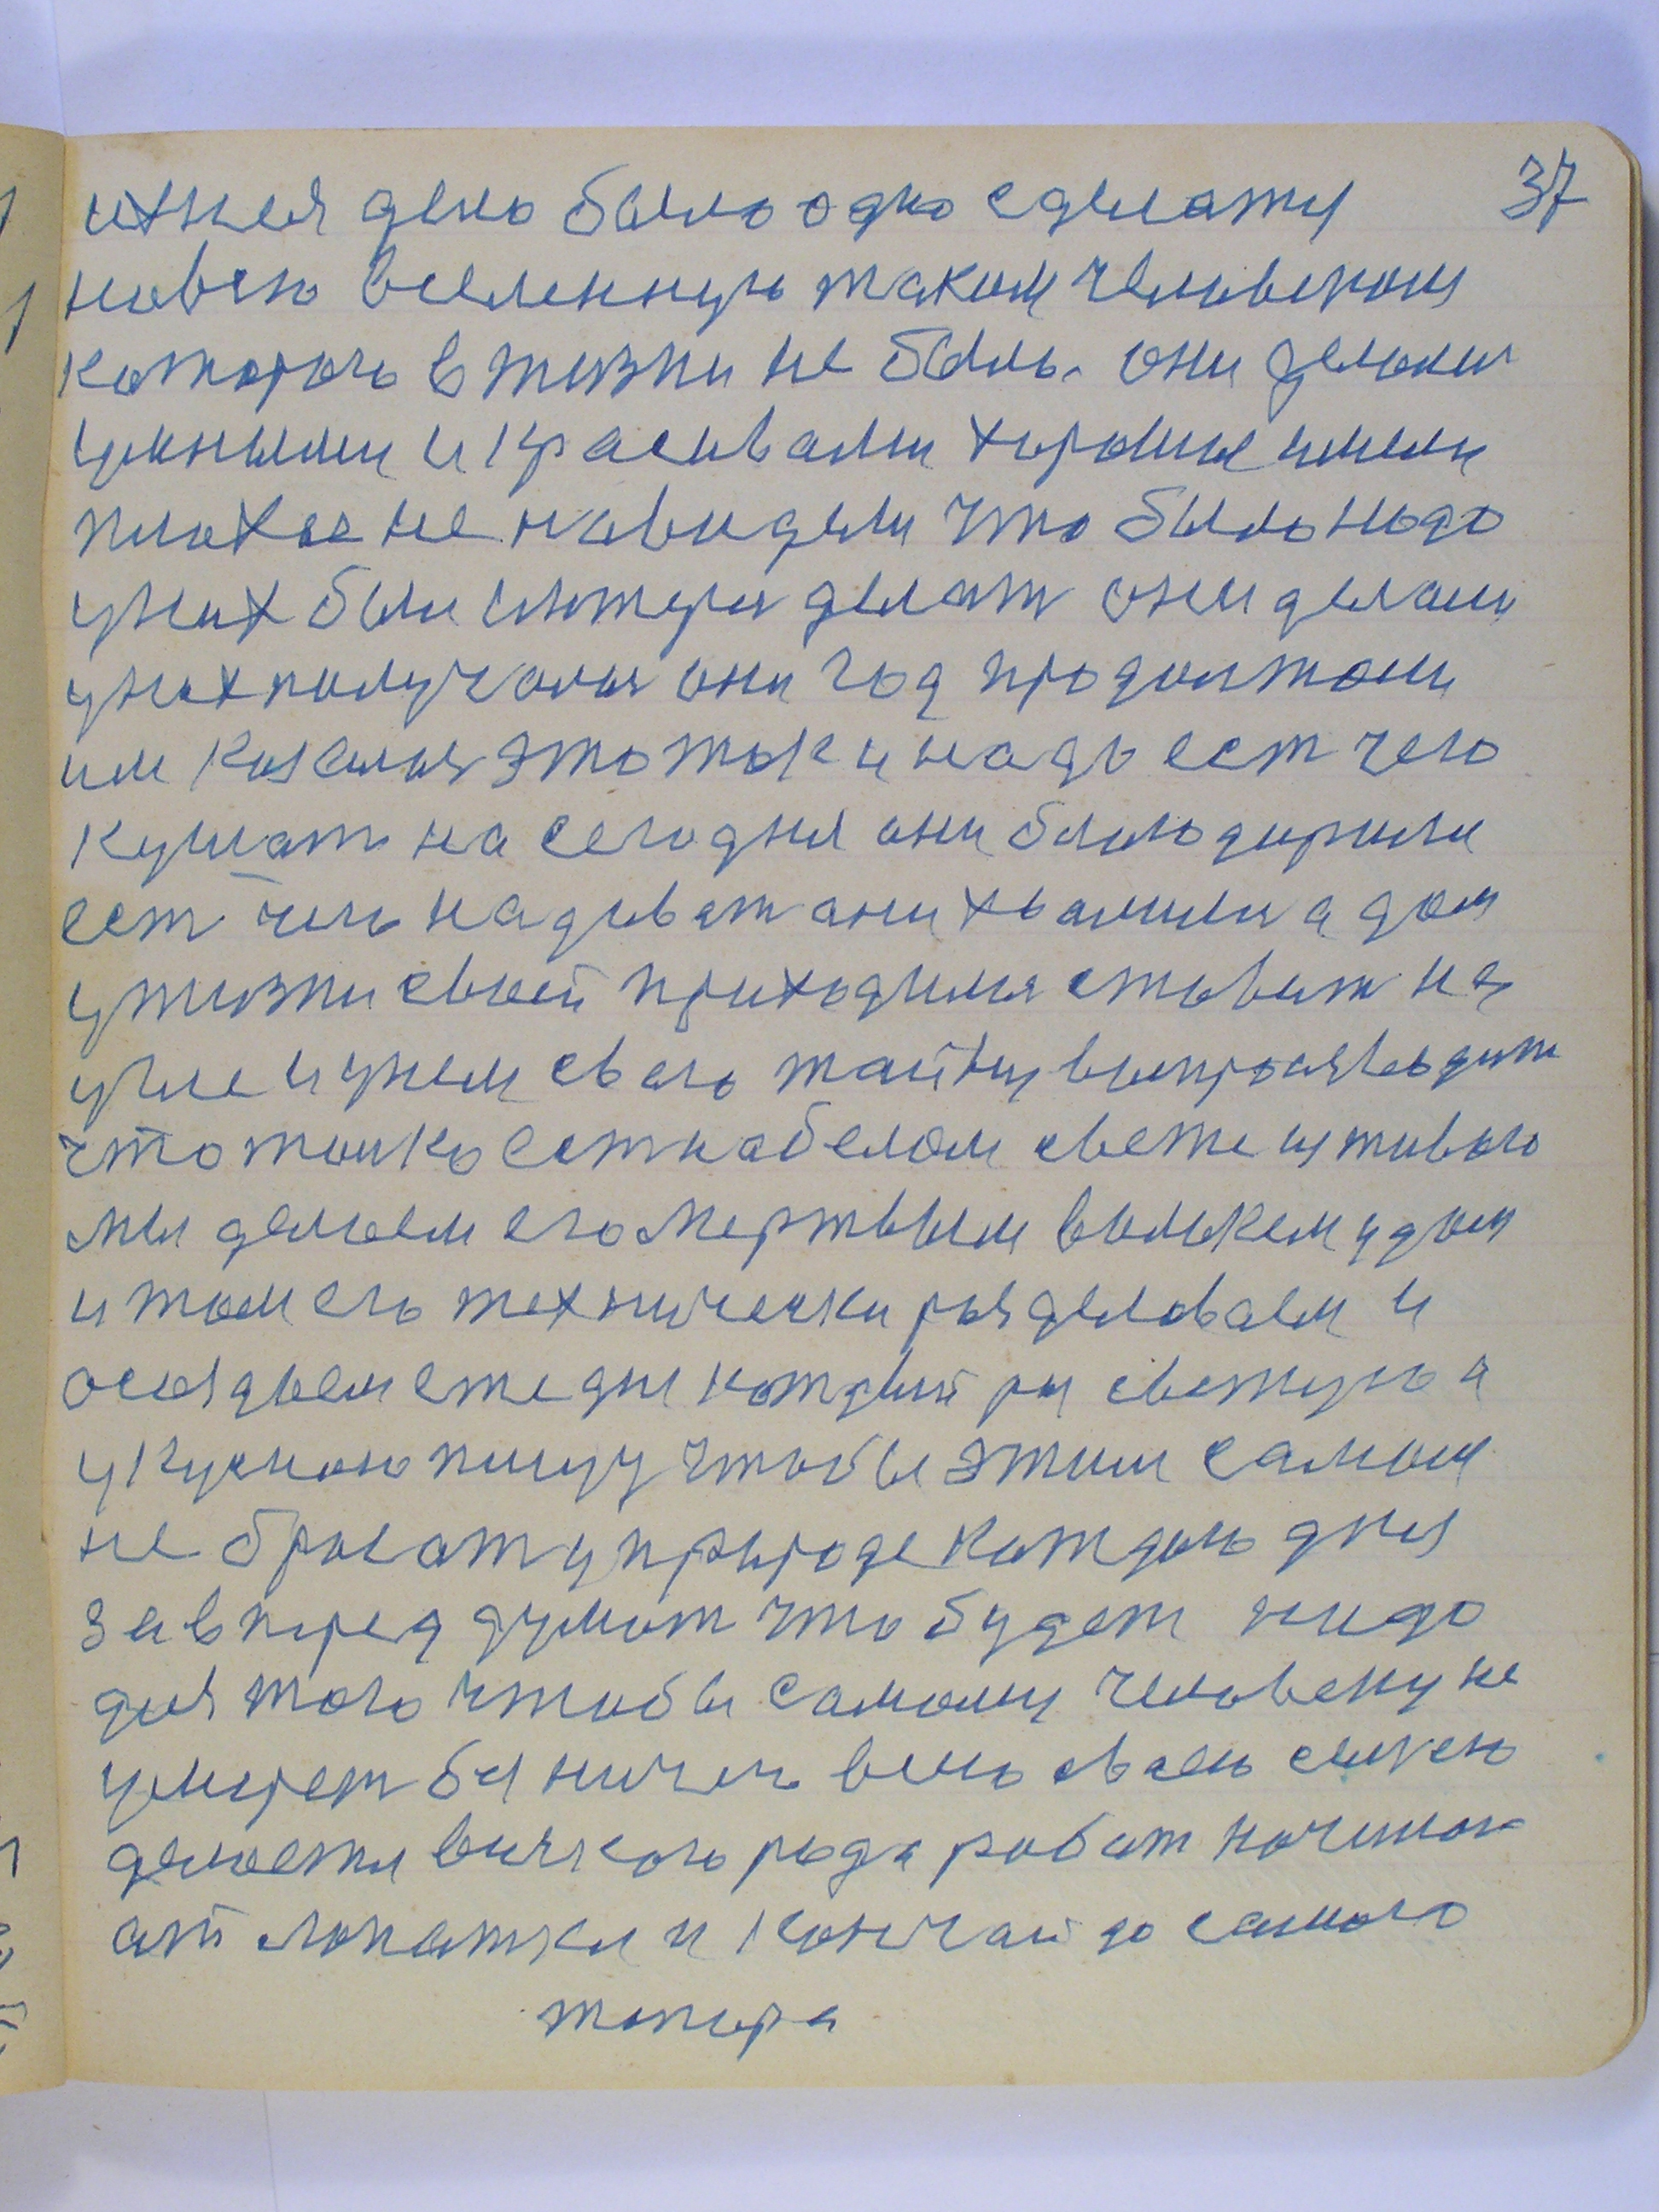 37
ихнея дело было одно сделать
новою вселенную таким человеком
которого в жизни не было. они делали
умными и красивами хорошие имели
плохое не навидели что было надо
у них были интерес делат они делали
у них получалося они год продолжали
им казалося это так и надо ест чего
кушат на сегодня они благодарили
ест чего надеват они хвалилися а дом
у жизни своей приходился ставит на
угле и у нем свою тайну воспроизводит
что толко ест на белом свете из живого
мы делаем его мертвым волокем у дом
и там его технически разделоваем и
оседаем ежедневно
укусною пищу чтобы этим самым
не бросат у природе каждого дня
за вперед думат что будет надо
для того чтобы самому человеку не
умерет без ничего всего своею силою
делается всякого рода работ начиная
от лопатки и кончай до самого
топора